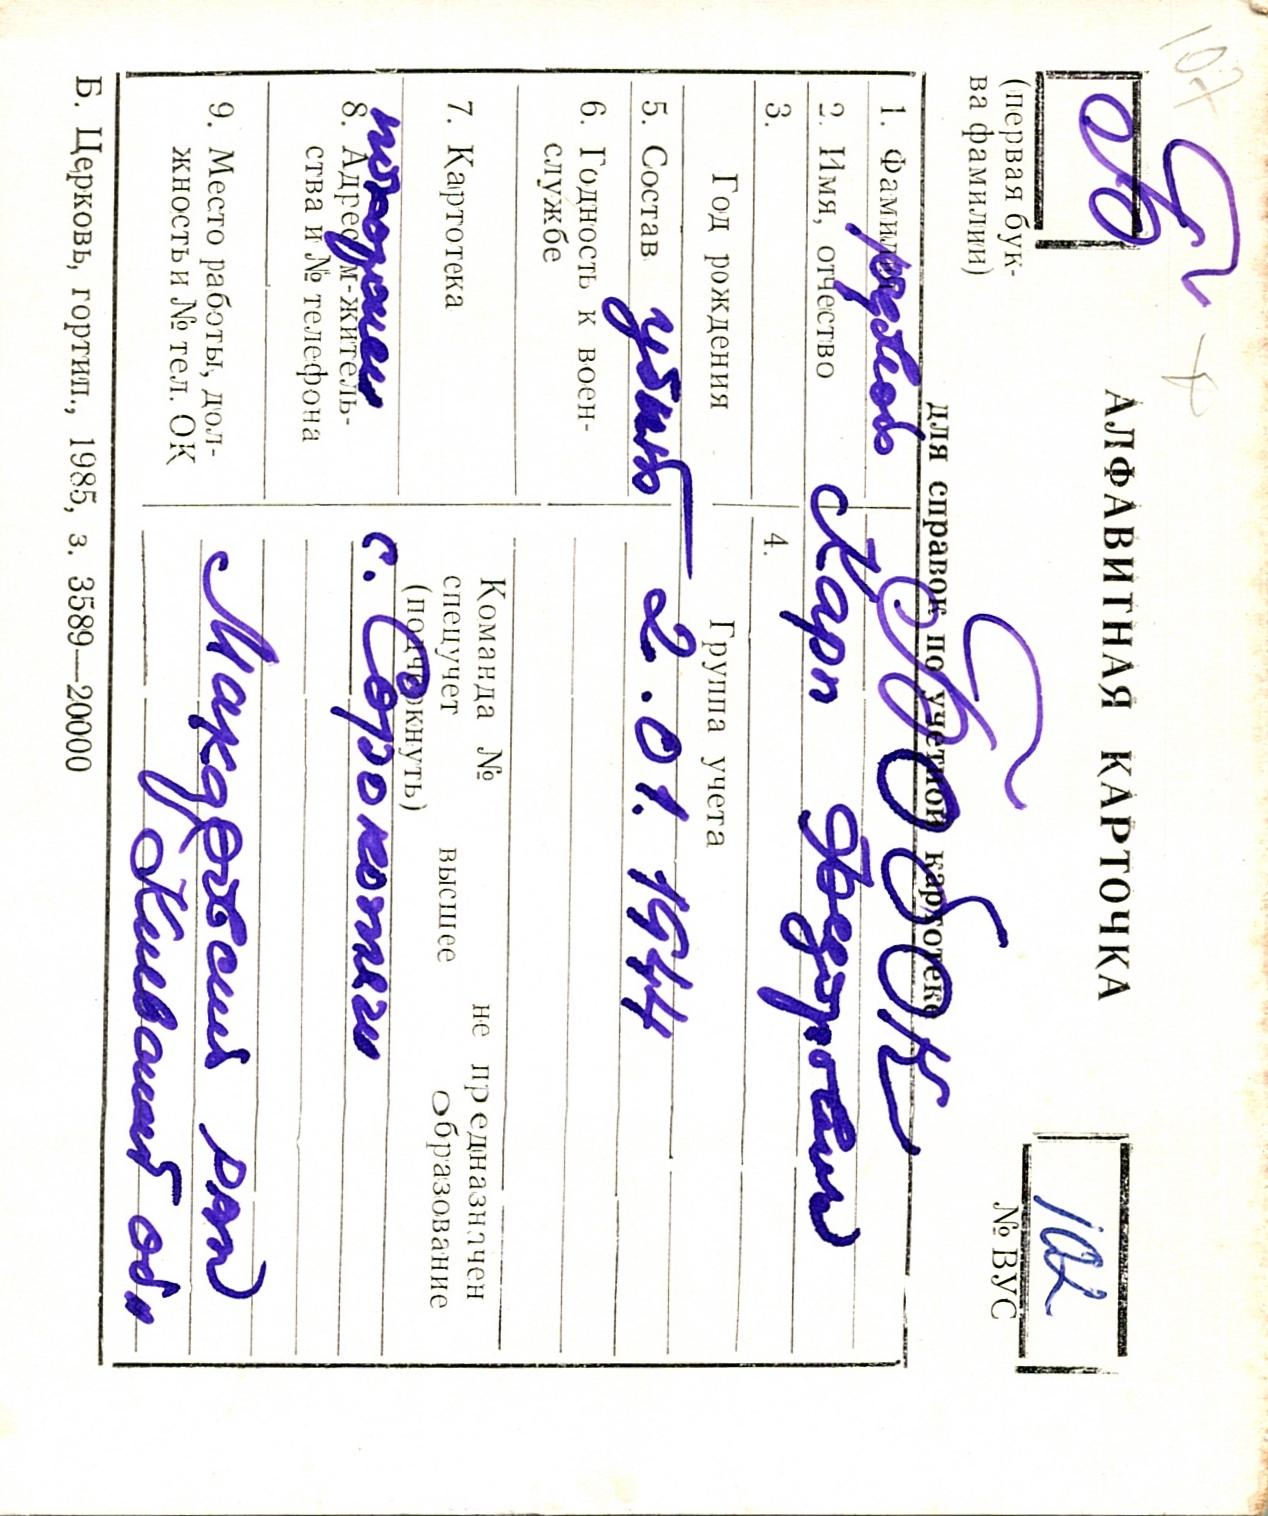 107
Б
АЛФАВИТНАЯ КАРТОЧКА
102
(первая бук-
ва фамилии)
для справок по учетной картотеке
№ ВУС
1. Фамилия
рядовой
Бобок
2. Имя, отчество
Карп
3.
4.
Год рождения
Группа учета
5. Состав
убит
2.01.1944
6. Годность к воен-
службе
7. Картотека
Команда №
не предназначен
спецучет
высшее
образование
(подчеркнуть)
8. Адрес м-житель-
ства и № телефона
похоронен
с. Сорокотяги
9. Место работы, дол-
жность и № тел. ОК
рн
Киевской обл
Б. Церковь, гортип., 1985, з. 3589—20000